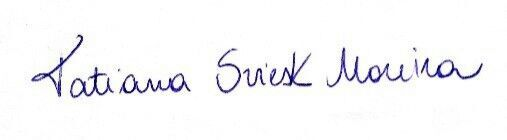 Tatiana Sviesk Moreira